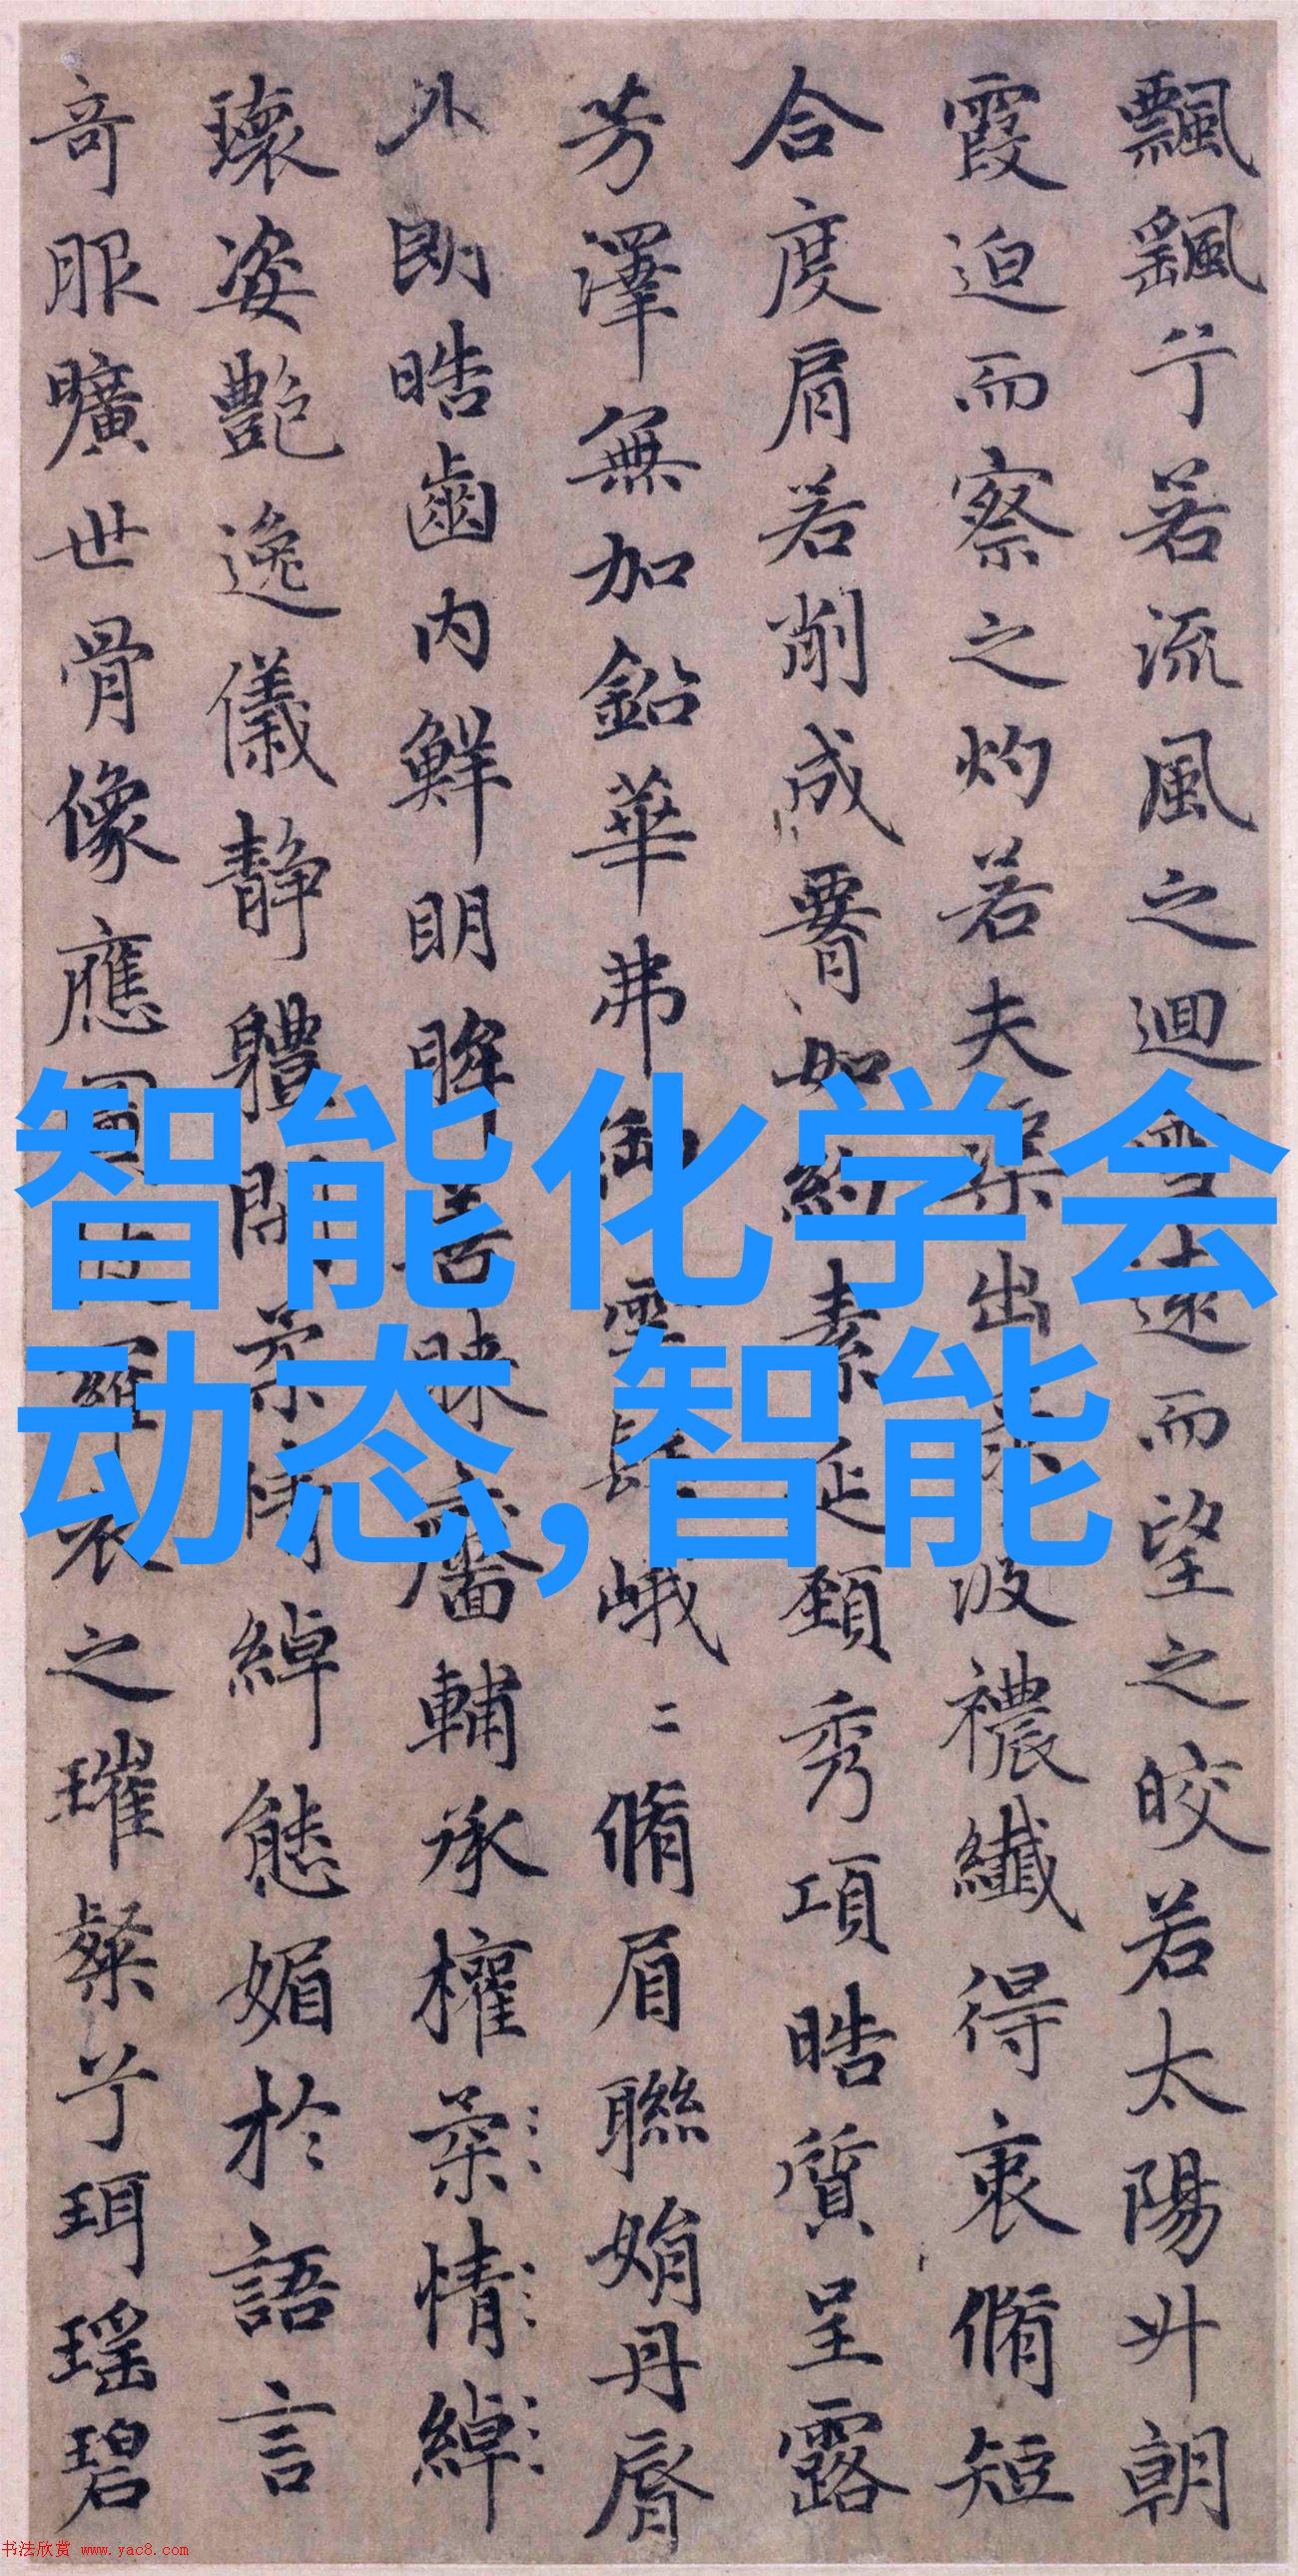 飄颻兮若流風之迴雪遠而望之皎若太陽升朝
霞迫而察之灼若夫渠出渌波禯纖得衷脩短
合度肩若削成腰如約素延頸秀項晧質呈露
芳澤無加鉛華弗御雲髻峨二脩眉聯娟丹脣
外朗晧齒内鮮明眸善睞靨輔承權柔情綽
瓌姿艶逸儀靜軆閑柔情綽態媚於語言
奇服曠世骨像應圖披羅衣之璀粲兮珥瑶碧
智能化学会
动态,智能
书法欣赏 www.yac8.com